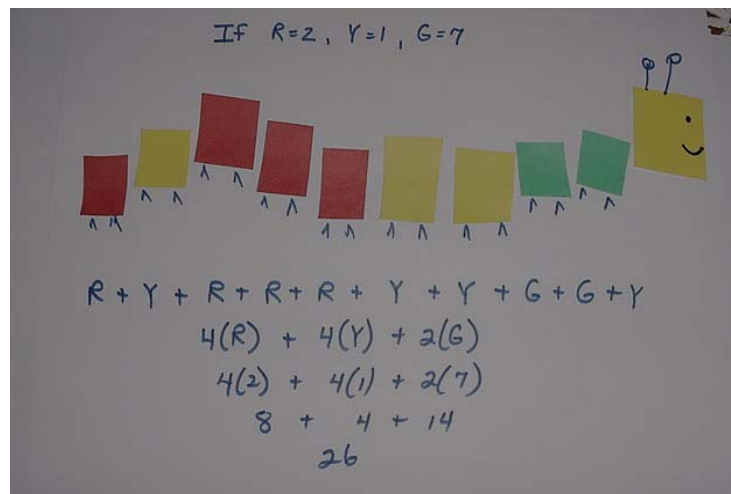 If R=2, Y=1, G=7
R + Y + R + R + R + Y + Y + G + G + Y
4(R) + 4(Y) + 2(G)
4(2) + 4(1) + 2(7)
8 + 4 + 14
26